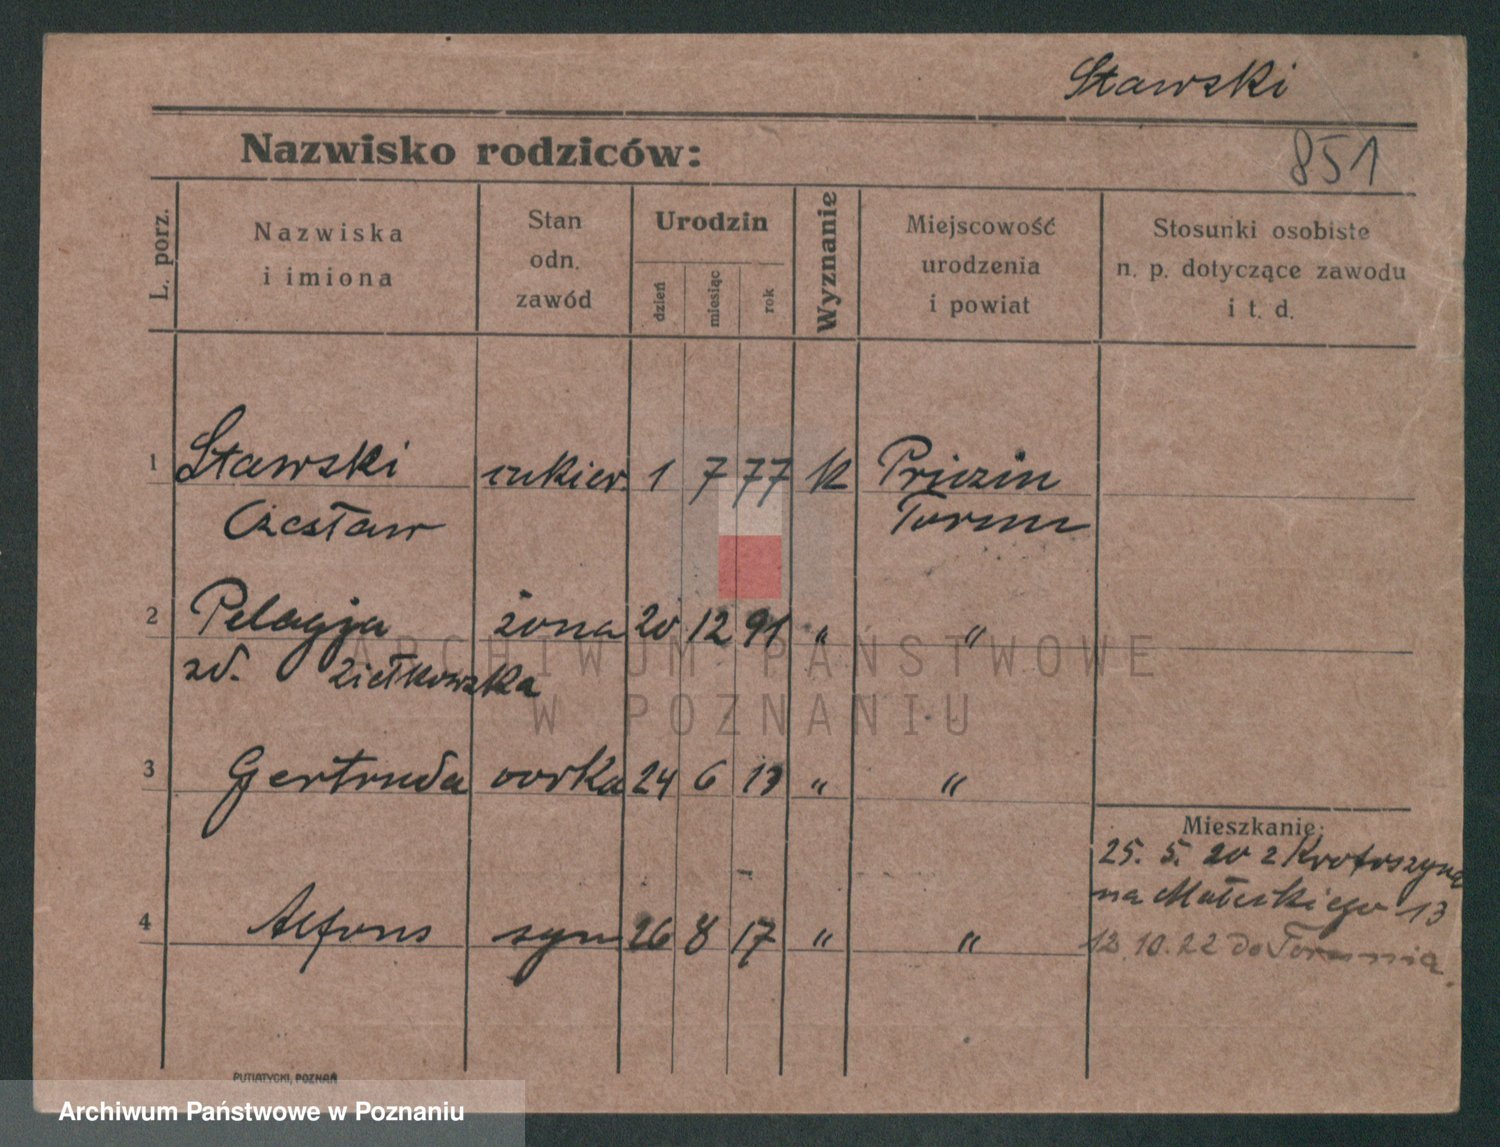 Stawski
Nazwisko rodziców:
851
L. porz.
Nazwiska
i imiona
Stan
odn.
zawód
Urodzin
dzień
miesiąc
rok
Wyznanie
Miejscowość
urodzenia
i powiat
Stosunki osobiste
n. p. dotyczące zawodu
i t. d.
1 Stawski cukier. 1 7 77 k
Czesław Toruń
2 Pelagja żona 20 12 91 "  "
zd. Ziełkowska
3 Gertruda córka 24 6 13 "  "
4 Alfons syn 26 8 17 "  "
Mieszkanie:
25. 5. 20 z Krotoszyna
na 13
12. 10. 22 do Torunia.
ARCHIWUM PAŃSTWOWE
W POZNANIU
PUTIATYCKI, POZNAŃ
Archiwum Państwowe w Poznaniu